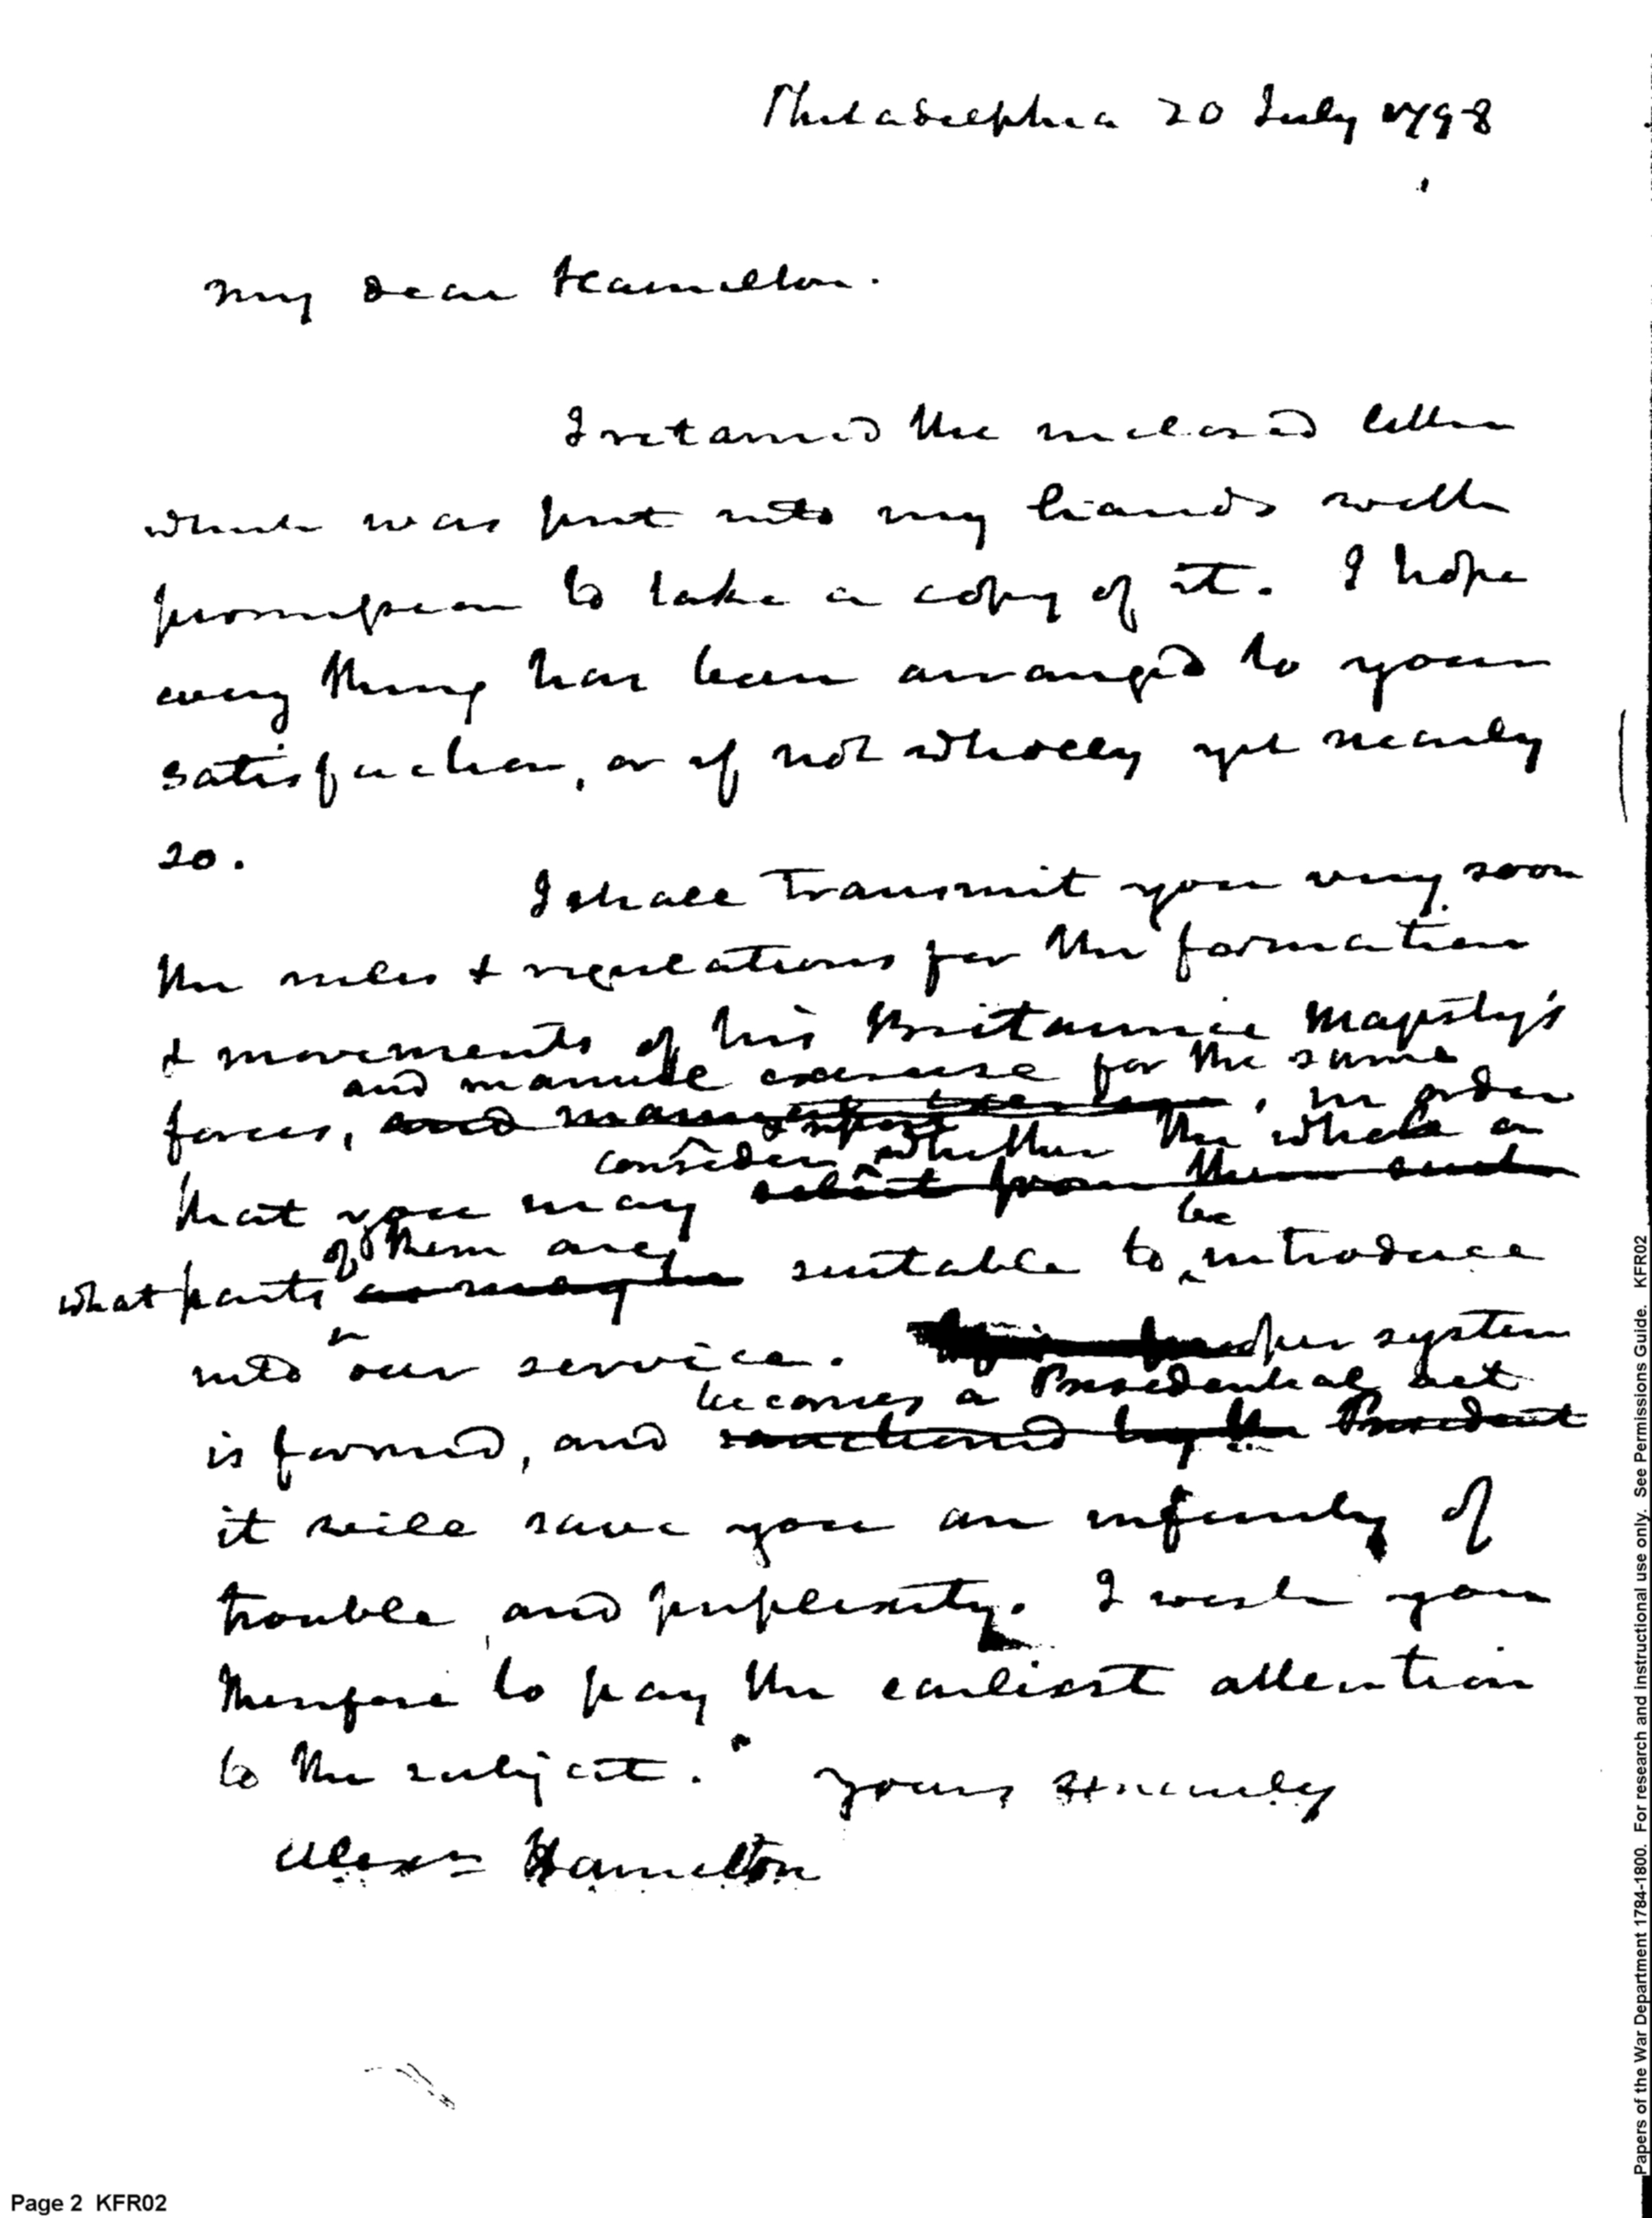 Philadelphia 20 July 1798
My dear Hamilton.
I retained the inclosed letter
which was put into my hands with
permission to take a copy of it. I hope
every thing has been arranged to your
satisfaction, or if not wholly yet nearly
so.
I shall transmit you very soon
the rules & regulations for the formation
& movements of his Britannic Majesty's
and manual exercise for the same
forces, and manual exercise, in order
consider & report whether the whole or
that you may select from them such
of them are be
what parts as may be suitable to introduce
into our service. If a proper system
becomes a Presidential act
is formed, and sanctioned by the President
it will save you an infinity of
trouble and perplexity. I wish you
therefore to pay the earliest attention
to the subject. Yours sincerely
Alexr Hamilton
Page 2 KFR02
Papers of the War Department 1784-1800. For research and instructional use only. See Permissions Guide. KFR02